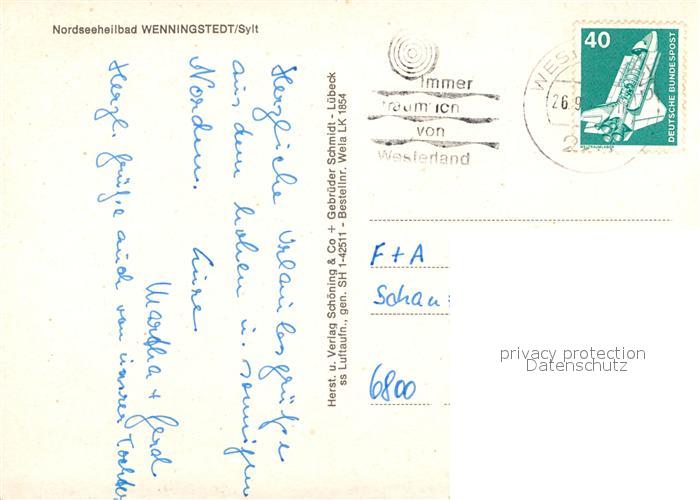 Nordseeheilbad WENNINGSTEDT/Sylt
Herzliche Urlaubsgrüße
aus dem hohen u. sonnigen
Norden. Eure
Martha + Gerd
Herzl. Grüße auch von unserer Tochter
Herst. u. Verlag Schöning & Co + Gebrüder Schmidt - Lübeck
ss Luftaufn., gen. SH 1-42511 - Bestellnr. Wela LK 1854
Immer
träum' ich
von
Westerland
WES
26.9
40
DEUTSCHE BUNDESPOST
WELTRAUMLABOR
F + A
Schau
6800
privacy protection
Datenschutz